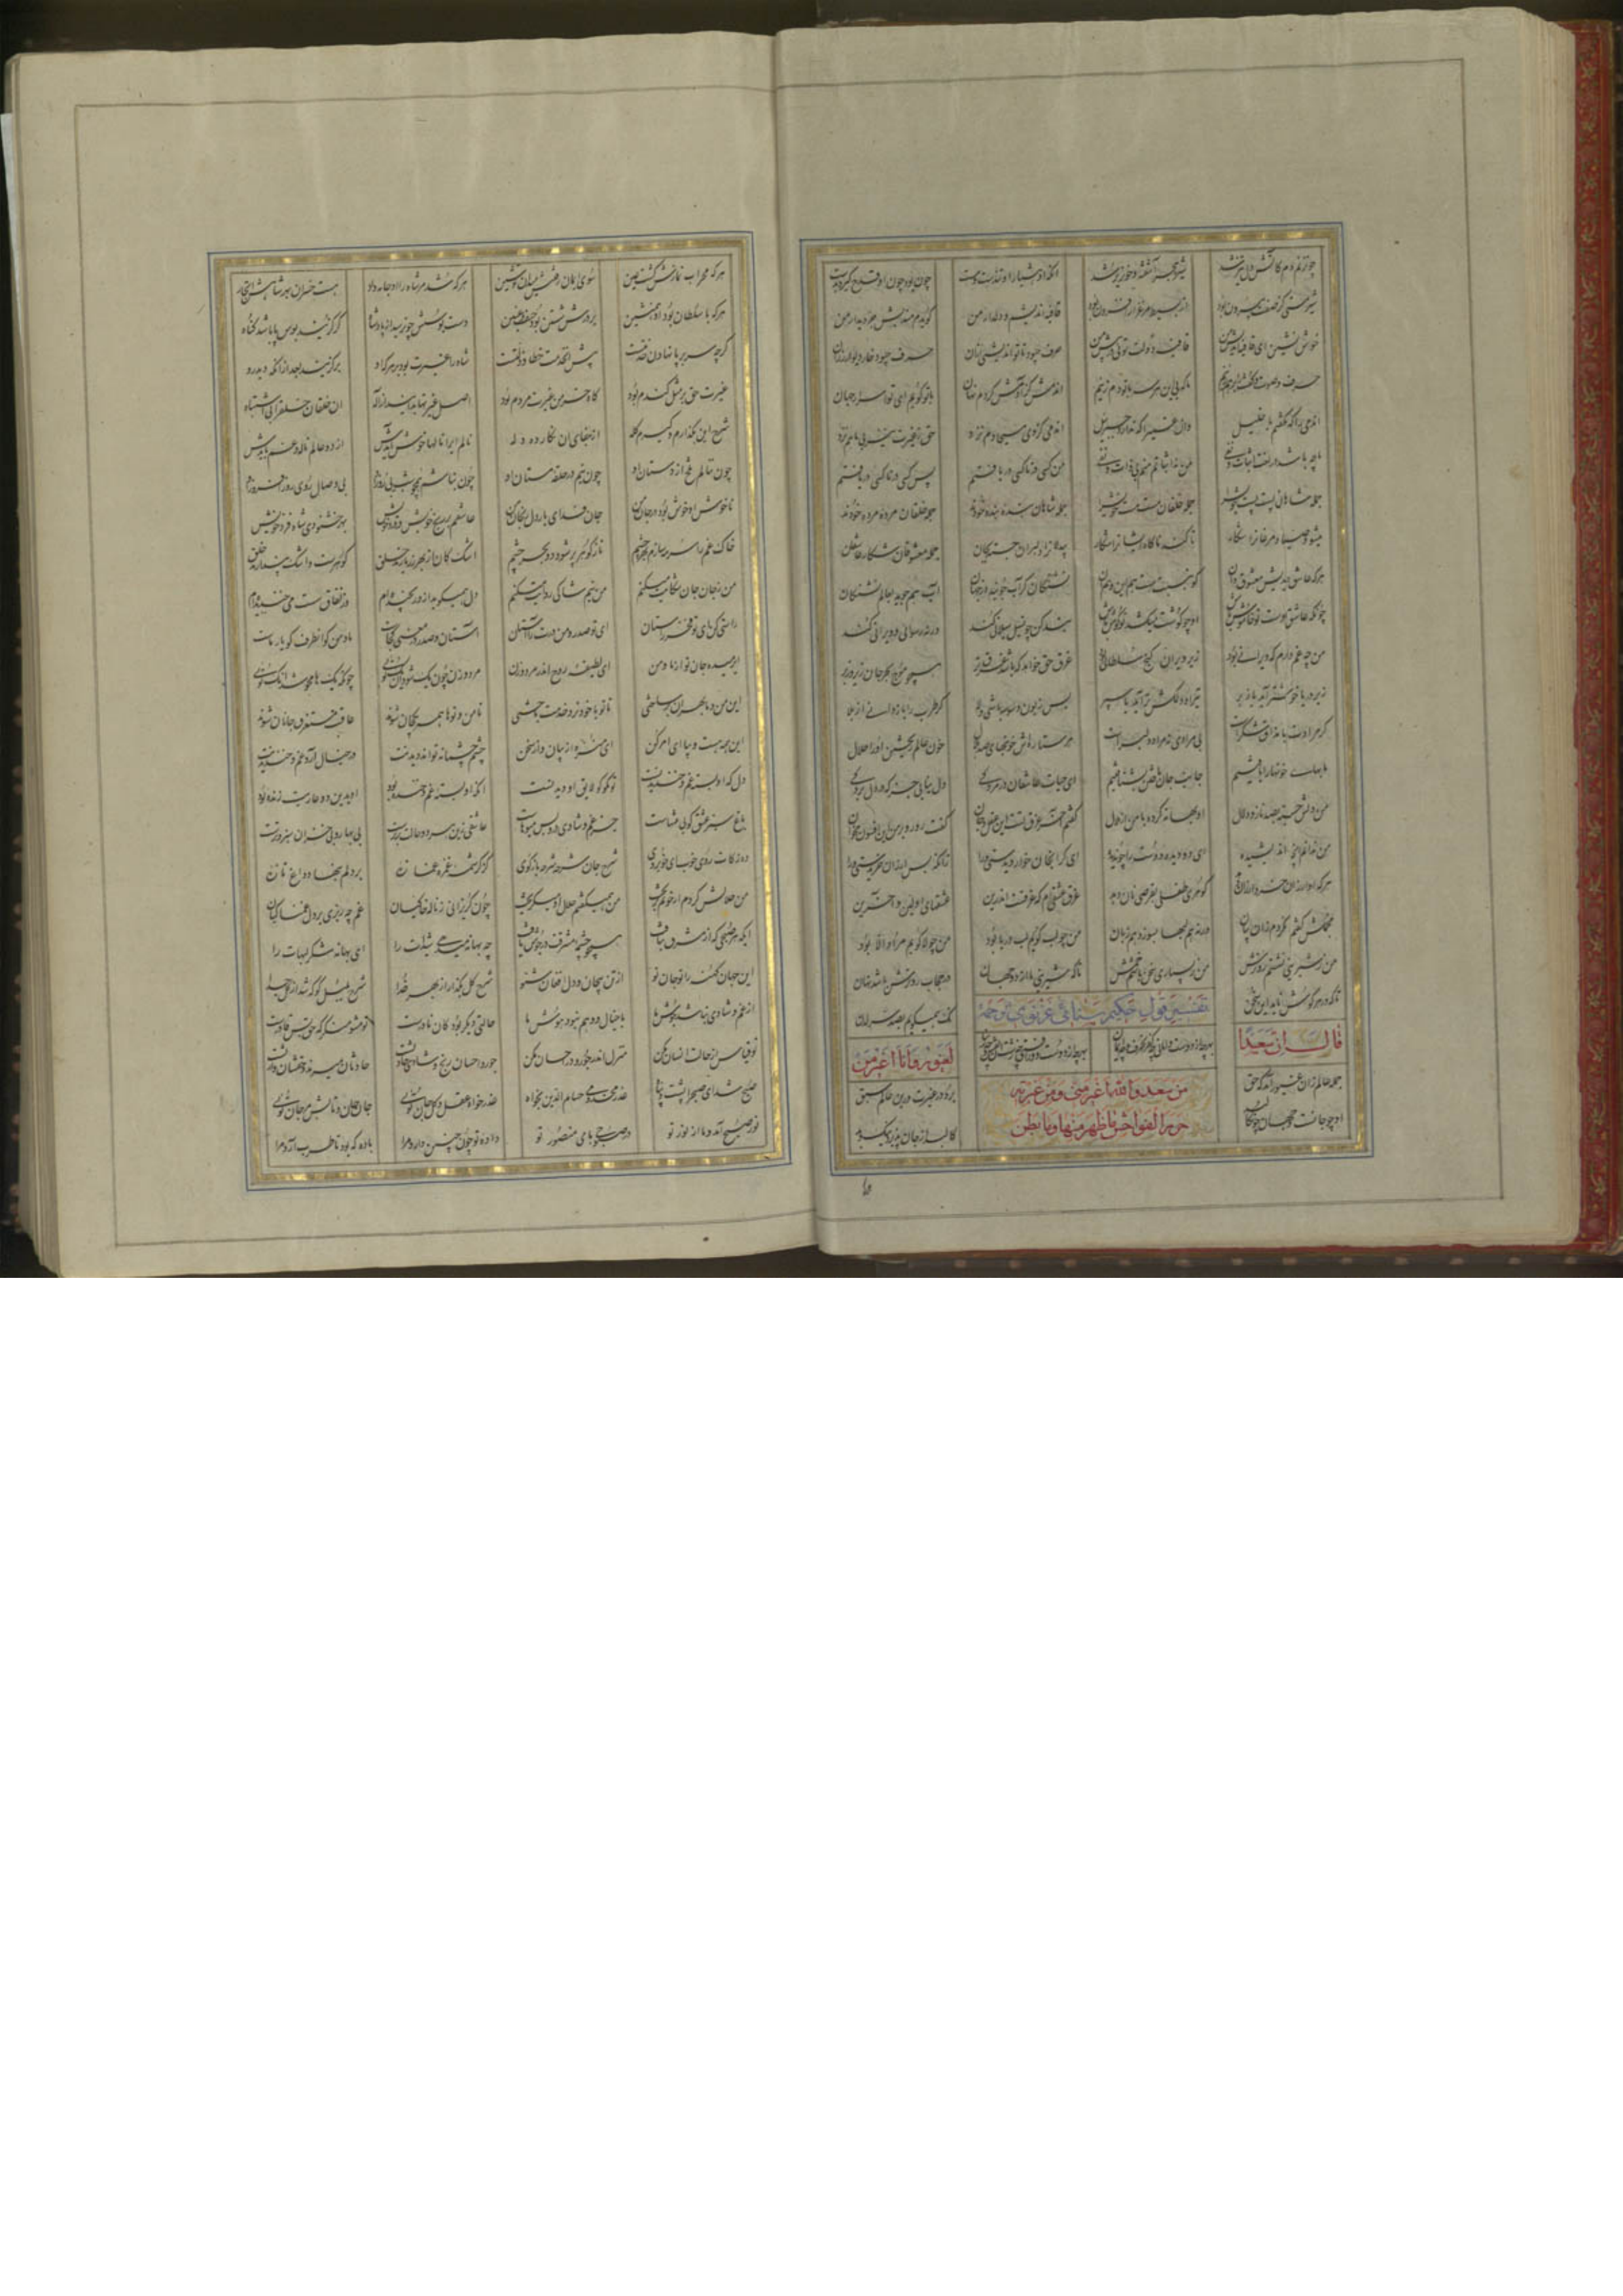 چون زنم دم کاتش دل تیز شد شیر هجر آشفته و خونریز شد انکه او هشیار خود تندست و مست چون بود چون او قدح گیرد بدست
شیر مستی کز صفت بیرون بود از بسیط مرغزار افزون بود قافیه اندیشم و دلدار من گویدم مندیش جز دیدار من
خوش نشین ای قافیه اندیش من قافیه دولت توئی در پیش من حرف چبود تا تو اندیشی ازان حرف چبود خار دیوار رزان
حرف و صوت و گفت را برهم زنم تا که بی این هر سه با تو دم زنم ان دمی کز آدمش کردم نهان با تو گویم ای تو اسرار جهان
ان دمی را که نگفتم با خلیل وان دمی را که نداند جبرئیل ان دمی کز وی مسیحا دم نزد حق ز غیرت نیز بی ما هم نزد
ما چه باشد در لغت اثبات و نفی من نه اثباتم منم بی ذات و نفی من کسی در ناکسی دریافتم پس کسی در ناکسی دربافتم
جمله شاهان پست پست خویش را جمله خلقان مست مست خویش را جمله شاهان بنده بنده خودند جمله خلقان مرده مرده خودند
میشود صیاد مرغانرا شکار تا کند ناگاه ایشانرا شکار بی دلانرا دلبران جسته بجان جمله معشوقان شکار عاشقان
هرکه عاشق دیدیش معشوق دان کو بنسبت هست هم این و هم آن تشنگان گر آب جویند از جهان آب هم جوید بعالم تشنگان
چونکه عاشق اوست تو خاموش باش او چو گوشت میکشد تو گوش باش بند کن چون سیل سیلانی کند ورنه رسوائی و ویرانی کند
من چه غم دارم که ویرانی بود زیر ویران گنج سلطانی بود غرق حق خواهد که باشد غرق تر همچو موج بحر جان زیر و زبر
زیر دریا خوشتر آید یا زبر تیر او دلکش تر آید یا سپر پس زبون وسوسه باشی دلا گر طرب را باز دانی از بلا
گر مرادت را مذاق شکرست بی مرادی نه مراد دلبرست هر ستاره اش خونبهای صد هلال خون عالم ریختن او را حلال
ما بها و خونبها را یافتیم جانب جان باختن بشتافتیم ای حیات عاشقان در مردگی دل نیابی جز که در دل بردگی
من دلش جسته بصد ناز و دلال او بهانه کرده با من از ملال گفتم اخر غرق تست این عقل و جان گفت رو رو بر من این افسون مخوان
من ندانم انچه اندیشیده ای دو دیده دوست را چون دیده ای گرانجان خوار دیدستی مرا زانکه بس ارزان خریدستی مرا
هرکه او ارزان خرد ارزان دهد گوهری طفلی بقرصی نان دهد غرق عشقی ام که غرقست اندرین عشقهای اولین و اخرین
مجملش گفتم نکردم زان بیان ورنه هم افهام سوزد هم زبان من چو لب گویم لب دریا بود من چو لا گویم مراد الا بود
من ز شیرینی نشستم رو ترش من ز بسیاری سخن باشم خمش تا که شیرینی ما از دو جهان در حجاب رو ترش باشد نهان
تا که در هر گوش ناید این سخن یک همی گویم ز صد سر لدن
تفسیر قول حکیم سنائی غزنوی
بهرچه از دوست وامانی چه کفر آن حرف و چه ایمان بهرچه از دوست دور افتی چه زشت آن نقش و چه زیبا
قال ان سعدا لغیور وانا اغیر من
من سعد والله اغیر منی ومن غیرته
حرم الفواحش ما ظهر منها وما بطن
جمله عالم زان غیور آمد که حق برد در غیرت برین عالم سبق
او چو جانست و جهان چون کالبد کالبد از جان پذیرد نیک و بد
هرکه محراب نمازش گشت عین سوی ایمان رفتنش میدان تو شین هرکه شد مر شاه را او جامه دار هست خسران بهر شاهش اتجار
هرکه با سلطان بود او همنشین بر درش شستن بود حیف و غبین دست بوسش چون رسید از پادشاه گر گزیند بوس پا باشد گناه
گرچه سر بر پا نهادن خدمتست پیش آن خدمت خطا و زلتست شاه را غیرت بود بر هر که او بو گزیند بعد ازانکه دید رو
غیرت حق بر مثل گندم بود کاه خرمن غیرت مردم بود اصل غیرتها بدانید از اله ان خلقان فرع حق بی اشتباه
شرح این بگذارم و گیرم گله از جفای ان نگار ده دله نالم ایرا نالها خوش آیدش از دو عالم ناله و غم بایدش
چون ننالم تلخ از دستان او چون نیم در حلقه مستان او چون نباشم همچو شب بی روز او بی وصال روی روز افروز او
ناخوش او خوش بود در جان من جان فدای یار دل رنجان من عاشقم بر رنج خویش و درد خویش بهر خشنودی شاه فرد خویش
خاک غم را سرمه سازم بهر چشم تا ز گوهر پر شود دو بحر چشم اشک کان از بهر او بارند خلق گوهرست و اشک پندارند خلق
من ز جان جان شکایت میکنم من نیم شاکی روایت میکنم دل همیگوید ازو رنجیده ام وز نفاق سست می خندیده ام
راستی کن ای تو فخر راستان ای تو صدر و من درت را آستان آستان و صدر در معنی کجاست ما و من کو انطرف کو یار ماست
ای رهیده جان تو از ما و من ای لطیفه روح اندر مرد و زن مرد و زن چون یک شود ان یک توئی چونکه یک ها محو شد آنک توئی
این من و ما بهر ان بر ساختی تا تو با خود نرد خدمت باختی تا من و توها همه یک جان شوند عاقبت مستغرق جانان شوند
این همه هست و بیا ای امر کن ای منزه از بیان و از سخن چشم جسمانه تواند دیدنت در خیال آرد غم و خندیدنت
دل که او بسته غم و خندیدنست تو مگو کو لایق ان دیدنست انکه او بسته غم و خنده بود او بدین دو عاریت زنده بود
باغ سبز عشق کو بی منتهاست جز غم و شادی درو بس میوهاست عاشقی زین هر دو حالت برترست بی بهار و بی خزان سبز و ترست
ده زکات روی خوب ای خوبروی شرح جان شرحه شرحه بازگوی کز کرشمه غمزه غمازه بر دلم بنهاد داغ تازه
من حلالش کردم ار خونم بریخت من همیگفتم حلال او میگریخت چون گریزانی ز ناله خاکیان غم چه ریزی بر دل غمناکیان
ایکه هر صبحی که از مشرق بتافت همچو چشمه مشرقت در جوش یافت چه بهانه میدهی شیدات را ای بهانه شکر لبهات را
این جهان کهنه را تو جان نو از تن بیجان و دل افغان شنو شرح گل بگذار از بهر خدا شرح بلبل گو که شد از گل جدا
از غم و شادی نباشد جوش ما با خیال و وهم نبود هوش ما حالتی دیگر بود کان نادرست تو مشو منکر که حق بس قادرست
تو قیاس از حالت انسان مکن منزل اندر جور و در احسان مکن جور و احسان رنج و شادی حادثست حادثان میرند و حقشان وارثست
صبح شد ای صبح را پشت و پناه عذر مخدومی حسام الدین بخواه عذر خواه عقل کل و جان توئی جان جان و تابش مرجان توئی
نور صبح آمد و ما از نور تو در صبوحی با می منصور تو داده تو چون چنین دارد مرا باده که بود تا طرب آرد مرا